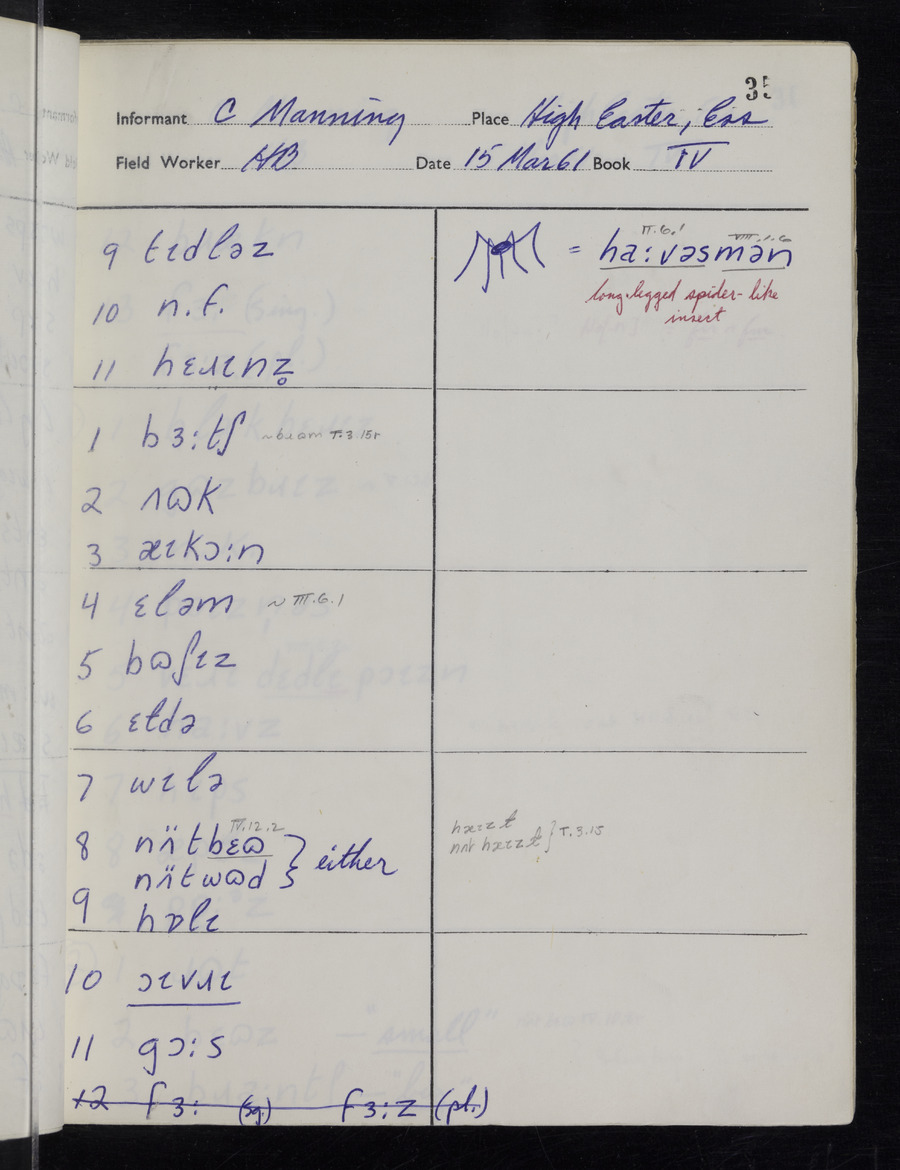 35
Informant C Manning Place High Easter, Ess
Field Worker HB Date 15 Mar 61 Book IV
9 tɪdləz
10 n.f.
11 hɛɹɪnz̥
1 bɜ:tʃ ~bɹəm T.3.15r
2 ʌɷk
3 æɪkɔ:n
4 ɛləm ~ III.6.1
5 bɷʃɪz
6 ɛɫdə
7 wɪlə
IV.12.2
8 nʌ̈tbɛɷ
nʌ̈twɷd } either
9 hɒlɪ
10 ɔɪvɹɪ
11 gɔ:s
12 fɜ: (sg.) fɜ:z (pl.)
II.6.1
= ha:vəsmən
long-legged spider-like
insect
T.3.15